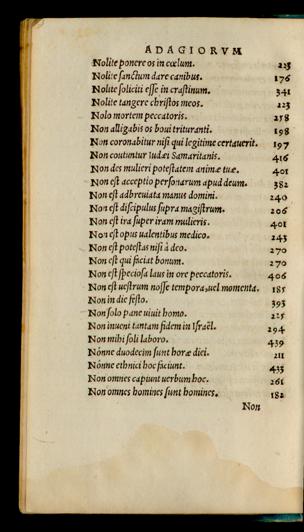 ADAGIORVM
Nolite ponere os in cœlum. 225
Nolite sanctum dare canibus. 176
Nolite soliciti esse in crastinum. 341
Nolite tangere christos meos. 223
Nolo mortem peccatoris. 258
Non alligabis os boui trituranti. 198
Non coronabitur nisi qui legitime certauerit. 197
Non coutuntur Iudæi Samaritanis. 416
Non des mulieri potestatem animæ tuæ. 401
Non est acceptio personarum apud deum. 382
Non est adbreuiata manus domini. 240
Non est discipulus supra magistrum. 206
Non est ira super iram mulieris. 401
Non est opus ualentibus medico. 243
Non est potestas nisi à deo. 270
Non est qui faciat bonum. 270
Non est speciosa laus in ore peccatoris. 406
Non est uestrum nosse tempora, uel momenta. 185
Non in die festo. 393
Non solo pane uiuit homo. 225
Non inueni tantam fidem in Israël. 294
Non mihi soli laboro. 439
Nónne duodecim sunt horæ diei. 211
Nónne ethnici hoc faciunt. 433
Non omnes capiunt uerbum hoc. 261
Non omnes homines sunt homines. 182
Non